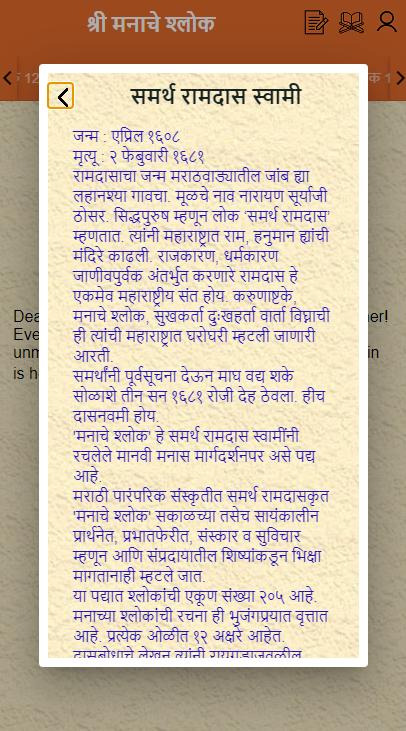 श्री मनाचे श्लोक
12
क 1
समर्थ रामदास स्वामी
जन्म : एप्रिल १६०८
मृत्यू : २ फेब्रुवारी १६८१
रामदासाचा जन्म मराठवाड्यातील जांब ह्या
लहानश्या गावचा. मूळचे नाव नारायण सूर्याजी
ठोसर. सिद्धपुरुष म्हणून लोक 'समर्थ रामदास'
म्हणतात. त्यांनी महाराष्ट्रात राम, हनुमान ह्यांची
मंदिरे काढली. राजकारण, धर्मकारण
जाणीवपुर्वक अंतर्भुत करणारे रामदास हे
एकमेव महाराष्ट्रीय संत होय. करुणाष्टके,
मनाचे श्लोक, सुखकर्ता दुःखहर्ता वार्ता विघ्नाची
ही त्यांची महाराष्ट्रात घरोघरी म्हटली जाणारी
आरती.
समर्थांनी पूर्वसूचना देऊन माघ वद्य शके
सोळाशे तीन सन १६८१ रोजी देह ठेवला. हीच
दासनवमी होय.
'मनाचे श्लोक' हे समर्थ रामदास स्वामींनी
रचलेले मानवी मनास मार्गदर्शनपर असे पद्य
आहे.
मराठी पारंपरिक संस्कृतीत समर्थ रामदासकृत
'मनाचे श्लोक' सकाळच्या तसेच सायंकालीन
प्रार्थनेत, प्रभातफेरीत, संस्कार व सुविचार
म्हणून आणि संप्रदायातील शिष्यांकडून भिक्षा
मागतानाही म्हटले जात.
या पद्यात श्लोकांची एकूण संख्या २०५ आहे.
मनाच्या श्लोकांची रचना ही भुजंगप्रयात वृत्तात
आहे. प्रत्येक ओळीत १२ अक्षरे आहेत.
दासबोधाचे लेखन त्यांनी रायगडाजवळील